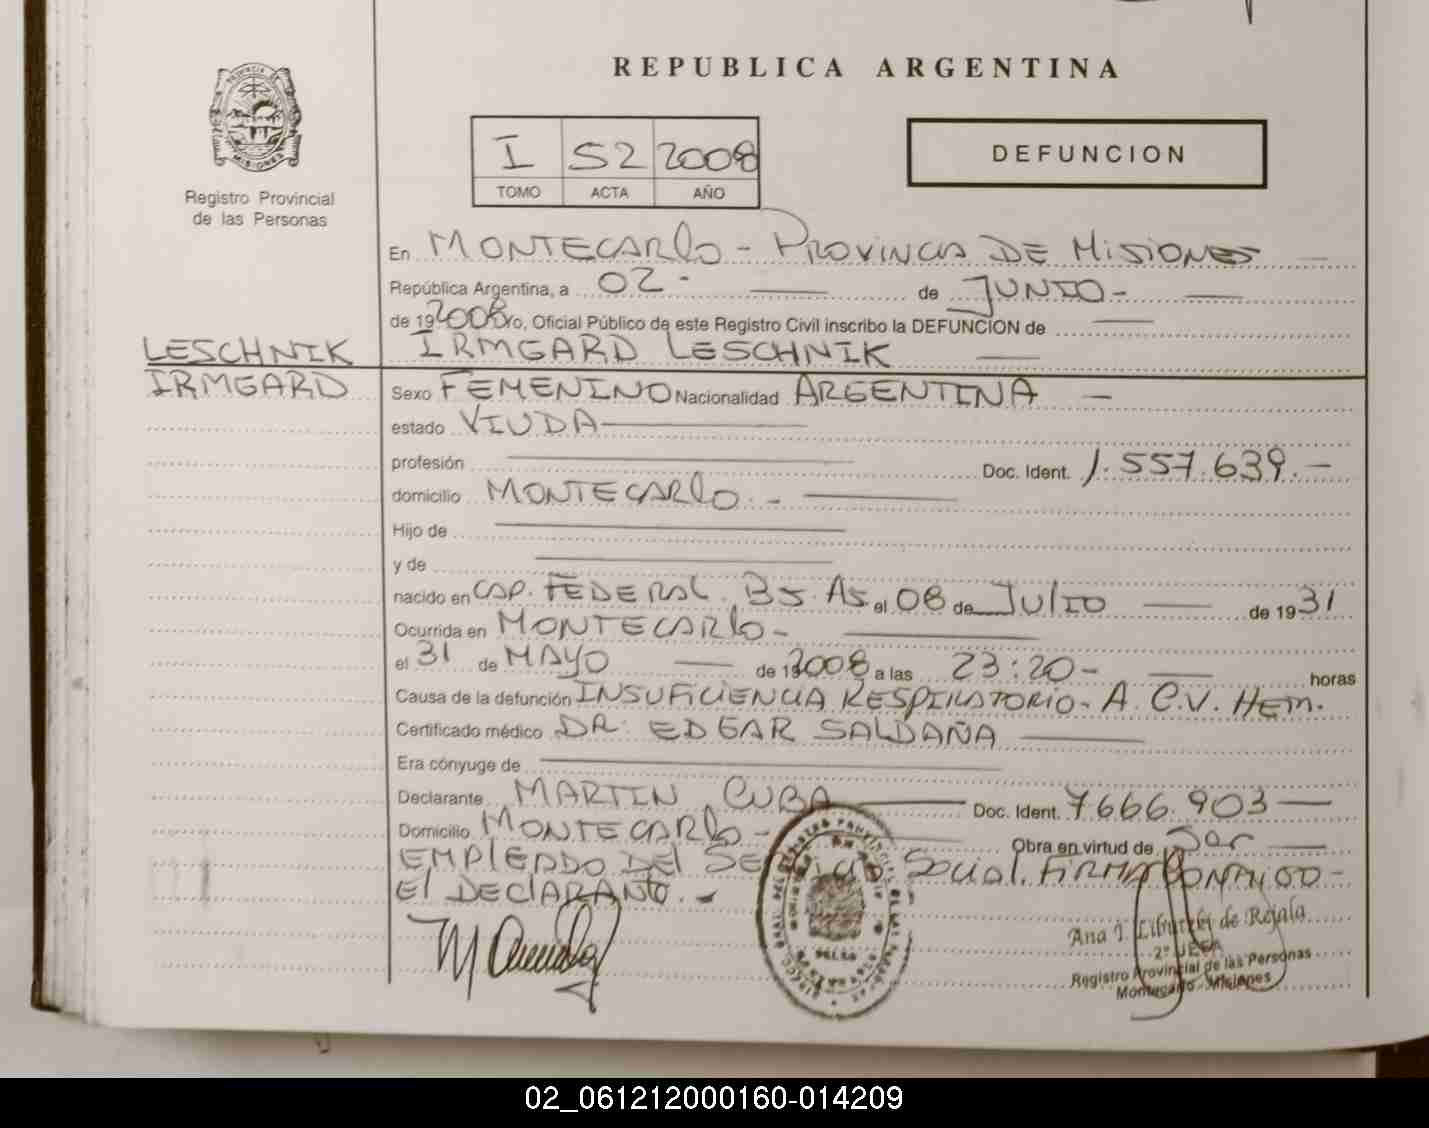 REPUBLICA ARGENTINA
PROVINCIA DE
MISIONES
Registro Provincial
de las Personas
I 52 2008
TOMO ACTA AÑO
DEFUNCION
En MONTECARLO - PROVINCIA DE MISIONES
República Argentina, a 02 - de JUNIO -
de 19 2008 Yo, Oficial Público de este Registro Civil inscribo la DEFUNCION de
LESCHNIK IRMGARD LESCHNIK
IRMGARD
Sexo FEMENINO Nacionalidad ARGENTINA -
estado VIUDA
profesión Doc. Ident. 1.557.639.-
domicilio MONTECARLO. -
Hijo de
y de
nacido en CAP. FEDERAL. BS. AS. el 08 de JULIO de 1931
Ocurrida en MONTECARLO -
el 31 de MAYO de 19 2008 a las 23:20 - horas
Causa de la defunción INSUFICIENCIA RESPIRATORIO - A. C.V. HEM.
Certificado médico DR. EDGAR SALDAÑA
Era cónyuge de
Declarante MARTIN CUBA Doc. Ident. 7666.903
Domicilio MONTECARLO - Obra en virtud de Ser
EMPLEADO DEL SERVICIO Social. FIRMA CONMIGO -
El DECLARANTE. -
Ana I. de Rejala
2º JEFA
Registro Provincial de las Personas
Montecarlo - Misiones
02_061212000160-014209